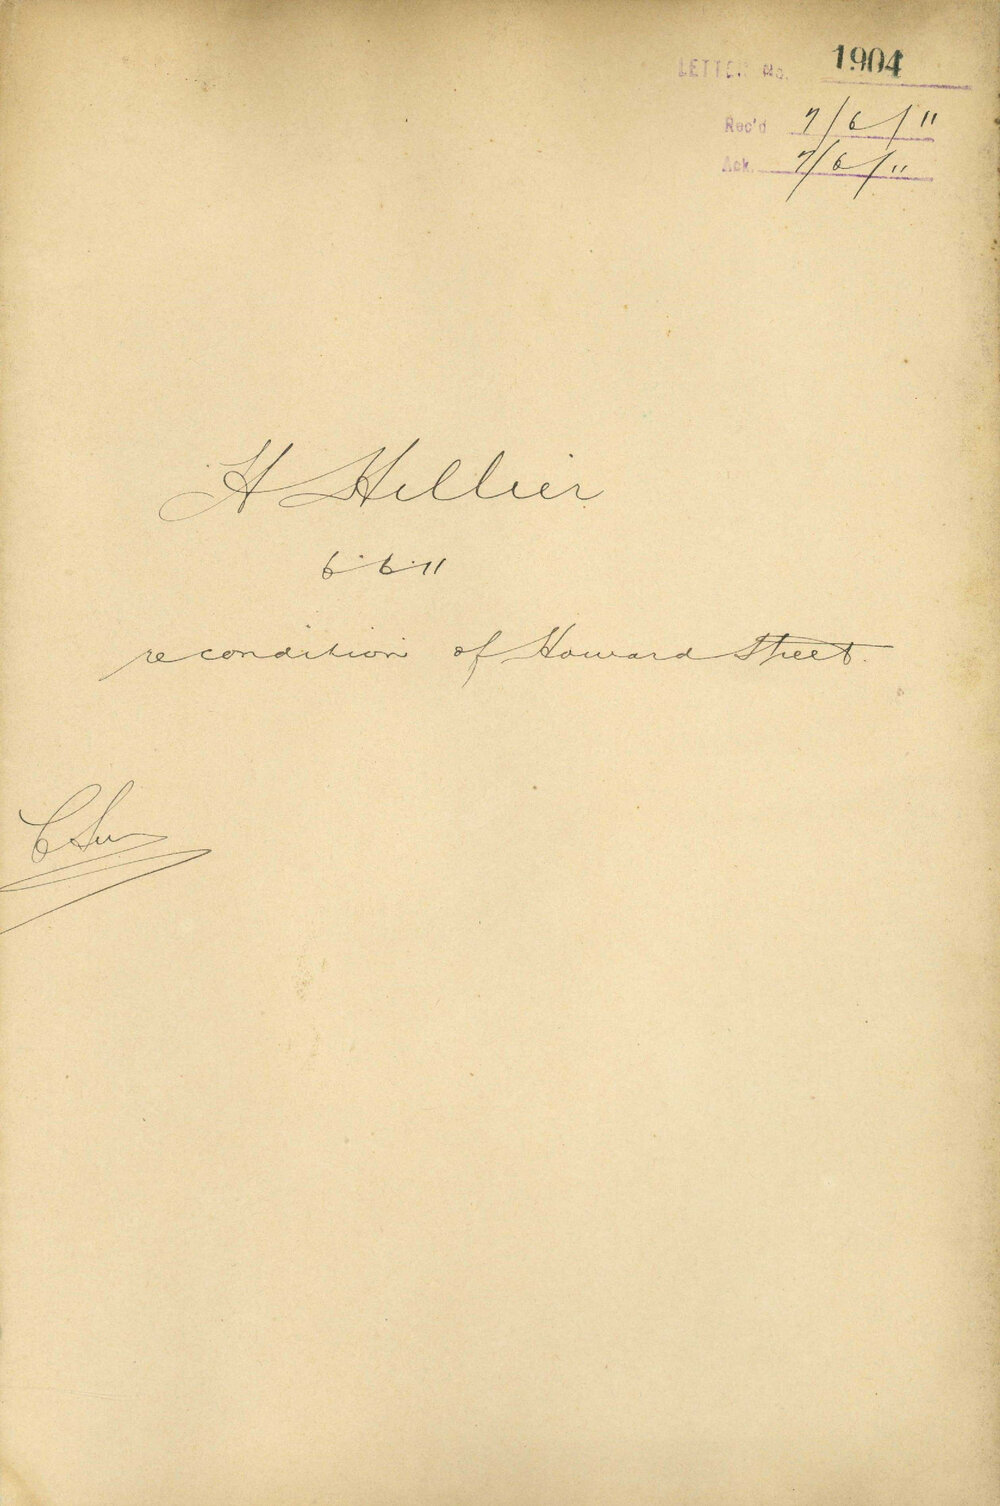 LETTER No. 1904
Rec'd 7/6/11
Ack. 7/6/11
H Hellier
6.6.11
re condition of Howard Street.